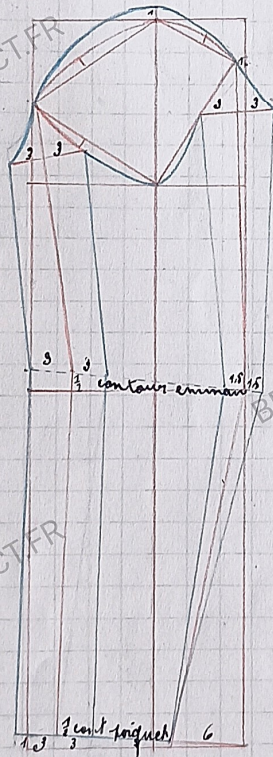 CT.FR
1
1
1
1
3 3
3 3
3 3
1/2 contour emman
1,5 1,5
CT.FR
1/2 cont poignet
1 3 3
6